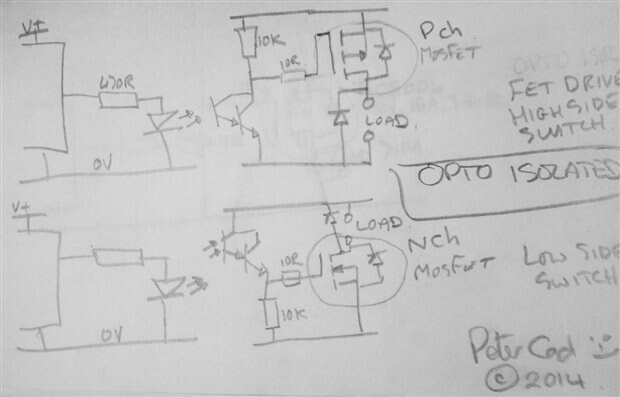 V+
470R
0V
10K
10R
LOAD.
Pch
MOSFET
FET DRIVE
HIGH SIDE
SWITCH.
OPTO ISOLATED
V+
0V
10R
10K
LOAD.
Nch
MOSFET
LOW SIDE
SWITCH
Peter Cad
© 2014.